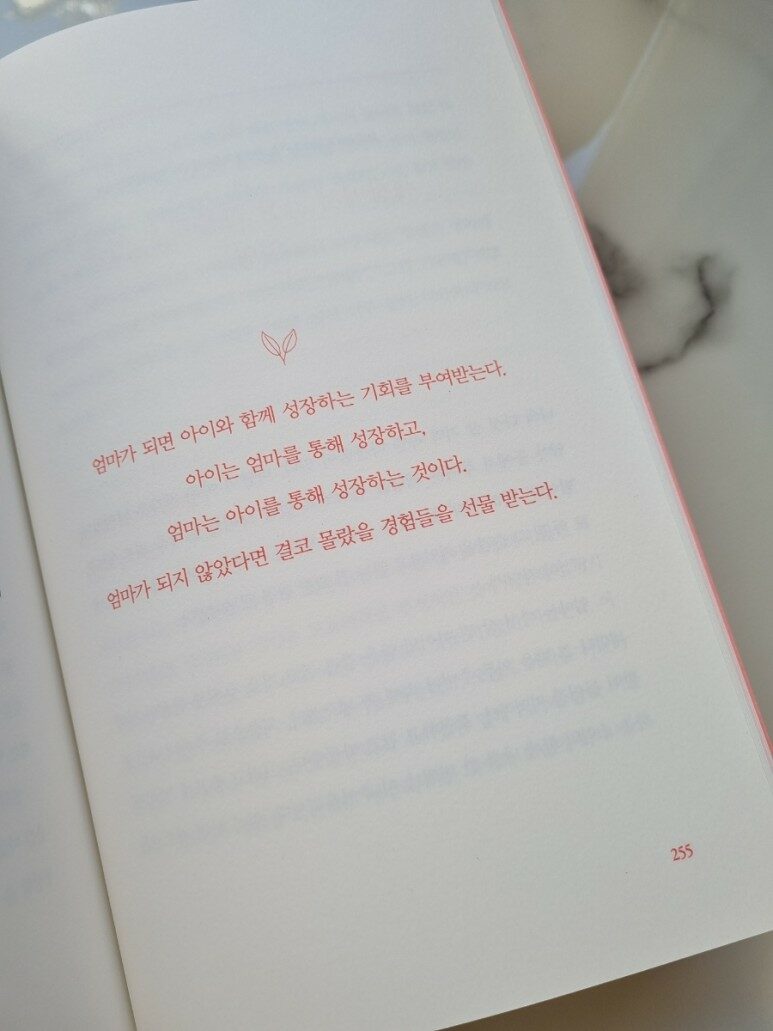 엄마가 되면 아이와 함께 성장하는 기회를 부여받는다.
아이는 엄마를 통해 성장하고,
엄마는 아이를 통해 성장하는 것이다.
엄마가 되지 않았다면 결코 몰랐을 경험들을 선물 받는다.
255